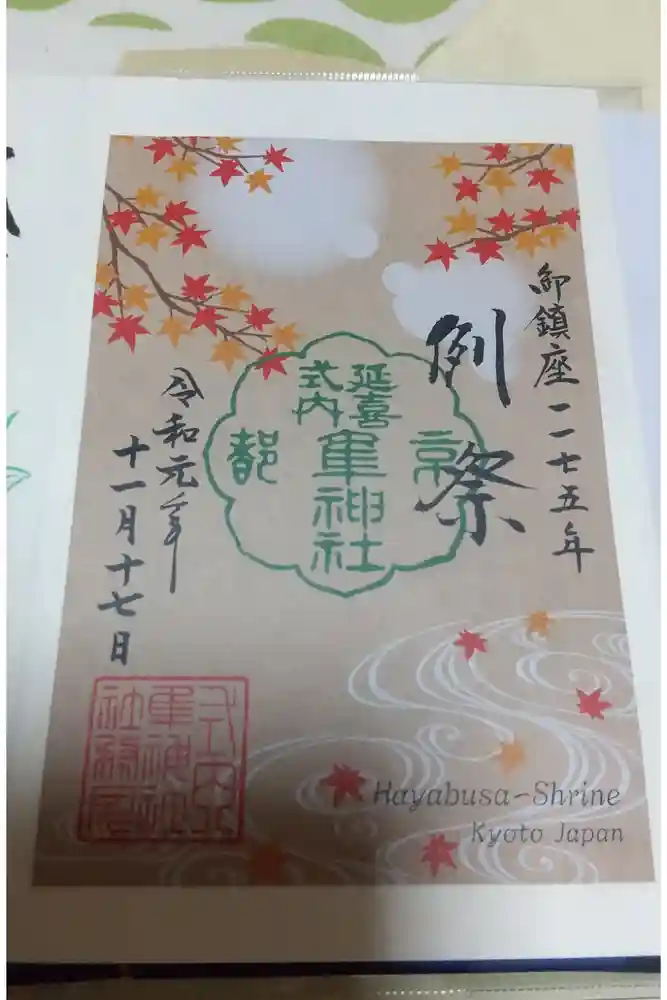 御鎮座一一七五年
例祭
京
延喜
式内
隼神社
都
令和元年
十一月十七日
式内
隼神社
社務所
Hayabusa-Shrine
Kyoto Japan